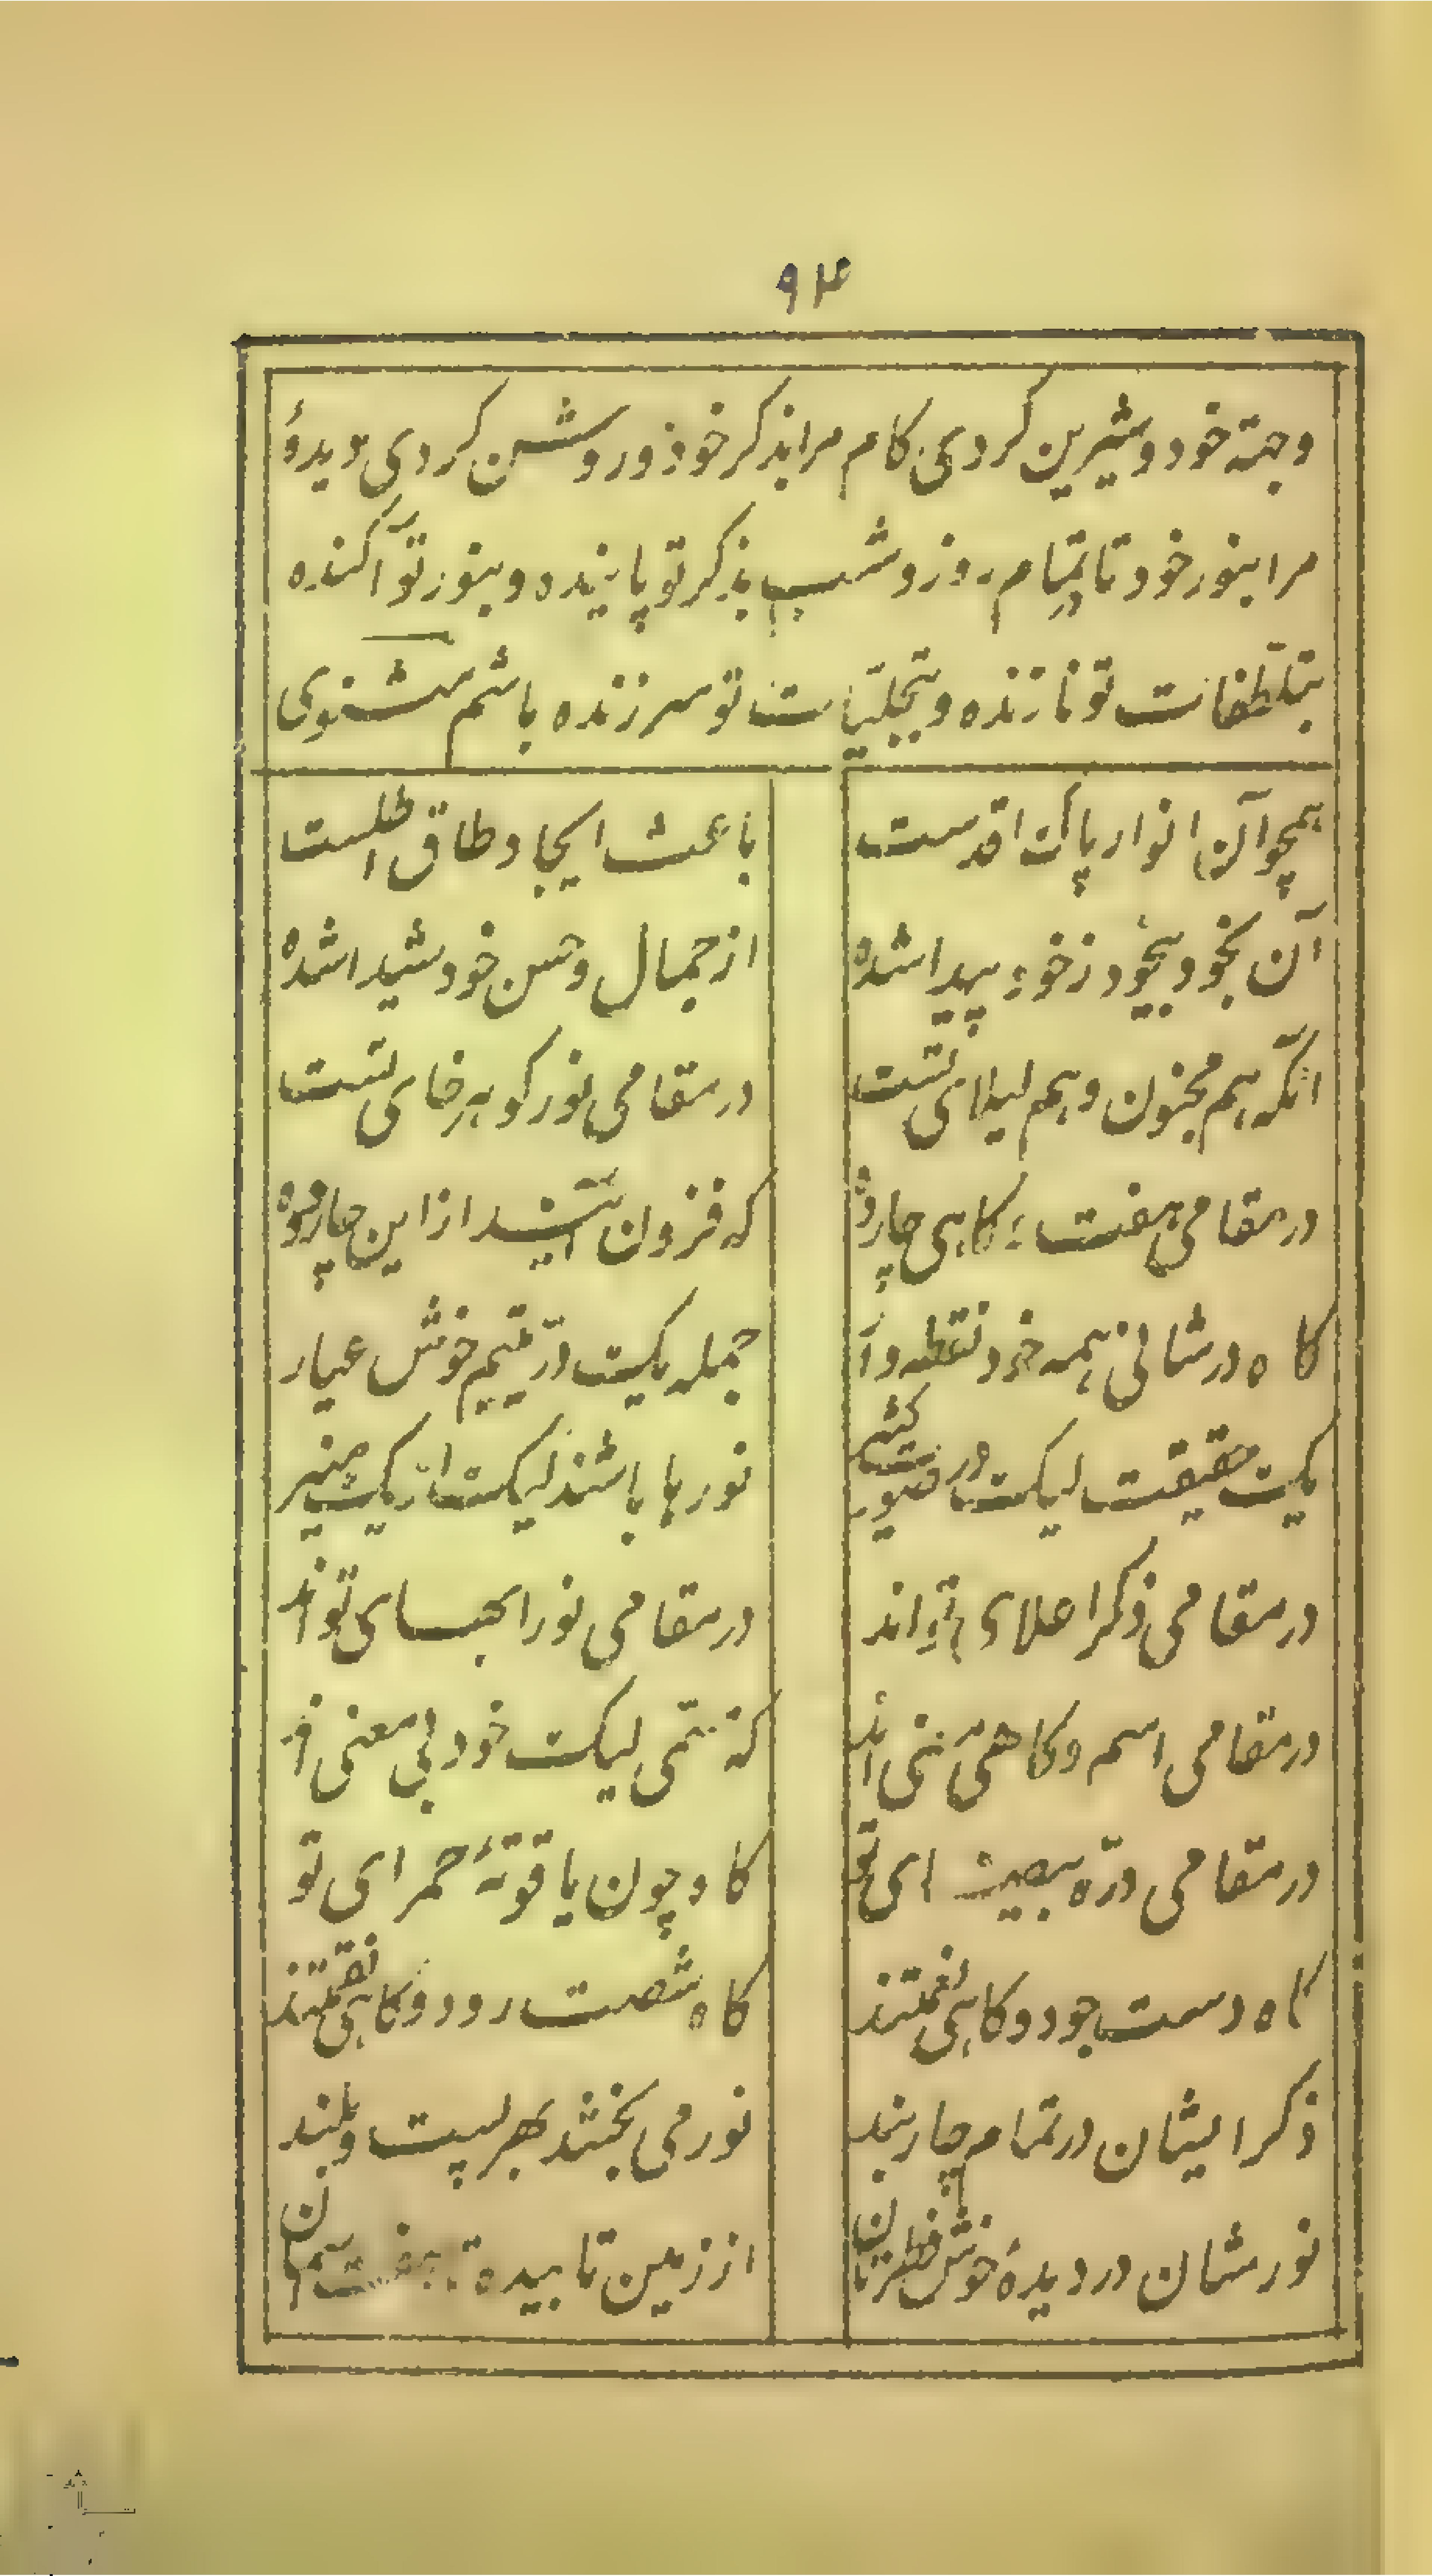 ۹۴
وجهة خود و شیرین کردی کام مرا بذکر خود و روشن کردی دیدهٔ
مرا بنور خود تا بتمام روز و شب بذکر تو پاینده و بنور تو آکنده
بتلطفات تو نازنده و بتجلیات تو سرزنده باشم مثنوی
همچو آن انوار پاک اقدست
باعث ایجاد طاق اطلست
آن بخود بیخود ز خود پیدا شده
از جمال و حسن خود شیدا شده
آنکه هم مجنون و هم لیلای تست
در مقامی نور کوه رضای تست
در مقامی هفت و کاهی چارده
که فزون آیند از این چار و ده
کاه در شانی همه خود نقطه وار
جمله یک درّ یتیم خوش عیار
یک حقیقت لیک در صورت کثیر
نورها باشند لیک از یک منیر
در مقامی ذکر اعلای تو اند
در مقامی نور ابهای تو اند
در مقامی اسم و کاهی معنی اند
لیک خود بی معنی اند
در مقامی درّه بیضای تو
کاه چون یاقوتهٔ حمرای تو
کاه دست جود و کاهی نعمتند
کاه شصت رود و کاهی نقمتند
ذکر ایشان در تمام چار بند
نور می بخشد بهر پست و بلند
نورشان در دیدهٔ خوش فطرتان
از زمین تابیده تا هفت آسمان